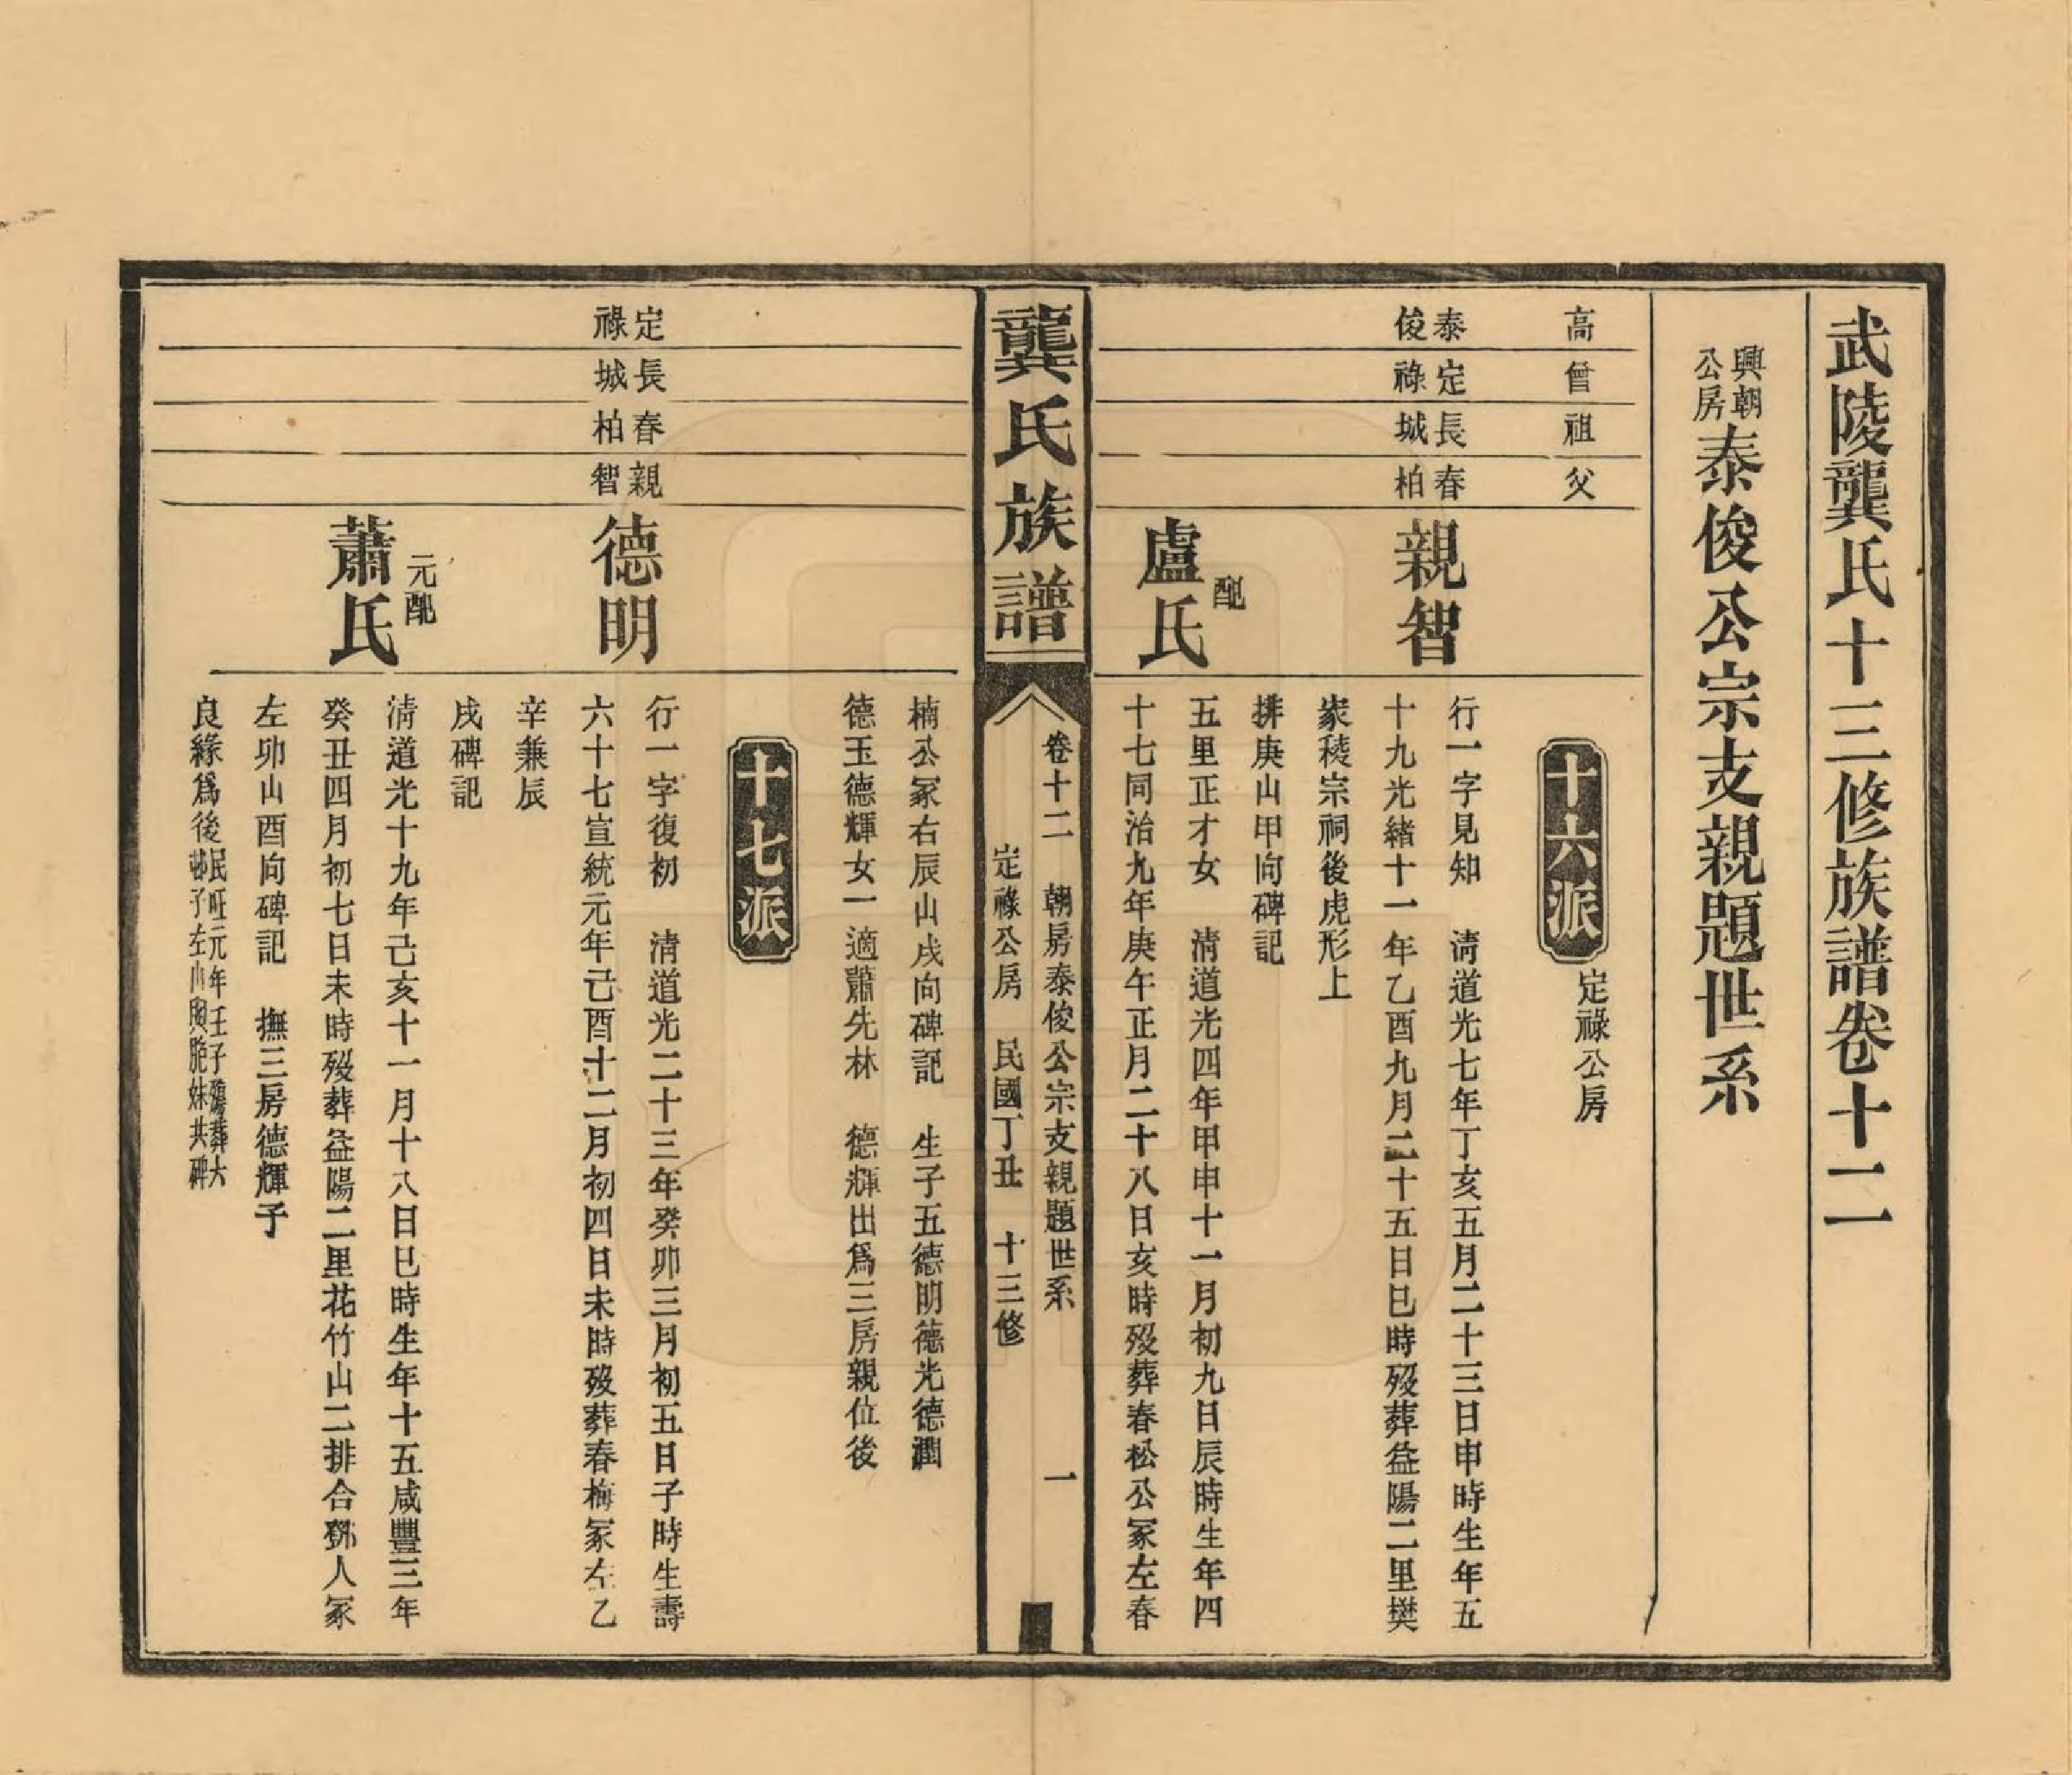 武陵龔氏十三修族譜卷十二
興朝公房
泰俊公宗支親題世系
高
曾
祖
父
十六派
定祿公房
泰俊
定祿
長城
春柏
親智
行一字見知　清道光七年丁亥五月二十三日申時生年五
十九光緒十一年乙酉九月二十五日巳時歿葬益陽二里樊
家稜宗祠後虎形上
排庚山甲向碑記
配
盧氏
五里正才女　清道光四年甲申十一月初九日辰時生年四
十七同治九年庚午正月二十八日亥時歿葬春松公冢左春
龔氏族譜
卷十二　朝房泰俊公宗支親題世系　一
定祿公房　民國丁丑　十三修
楠公冢右辰山戌向碑記　生子五德明德光德潤
德玉德輝女一適蕭先林　德輝出爲三房親位後
十七派
定祿
長城
春柏
親智
德明
行一字復初　清道光二十三年癸卯三月初五日子時生壽
六十七宣統元年己酉十二月初四日未時歿葬春梅冢左乙
辛兼辰
戌碑記
元配
蕭氏
清道光十九年己亥十一月十八日巳時生年十五咸豐三年
癸丑四月初七日未時歿葬益陽二里花竹山二排合鄧人冢
左卯山酉向碑記　撫三房德輝子
良緣爲後
民 元年壬子殤葬大
子左山與胞妹共碑